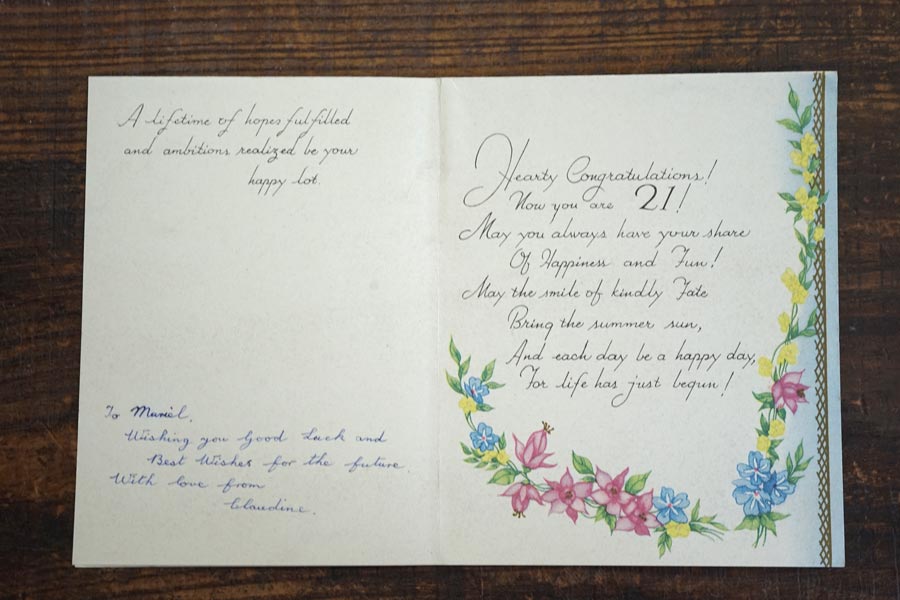 A lifetime of hopes fulfilled
and ambitions realized be your
happy lot.
To Muriel,
Wishing you Good Luck and
Best Wishes for the future.
With love from
Claudine.
Hearty Congratulations!
Now you are 21!
May you always have your share
Of Happiness and Fun!
May the smile of kindly Fate
Bring the summer sun,
And each day be a happy day,
For life has just begun!